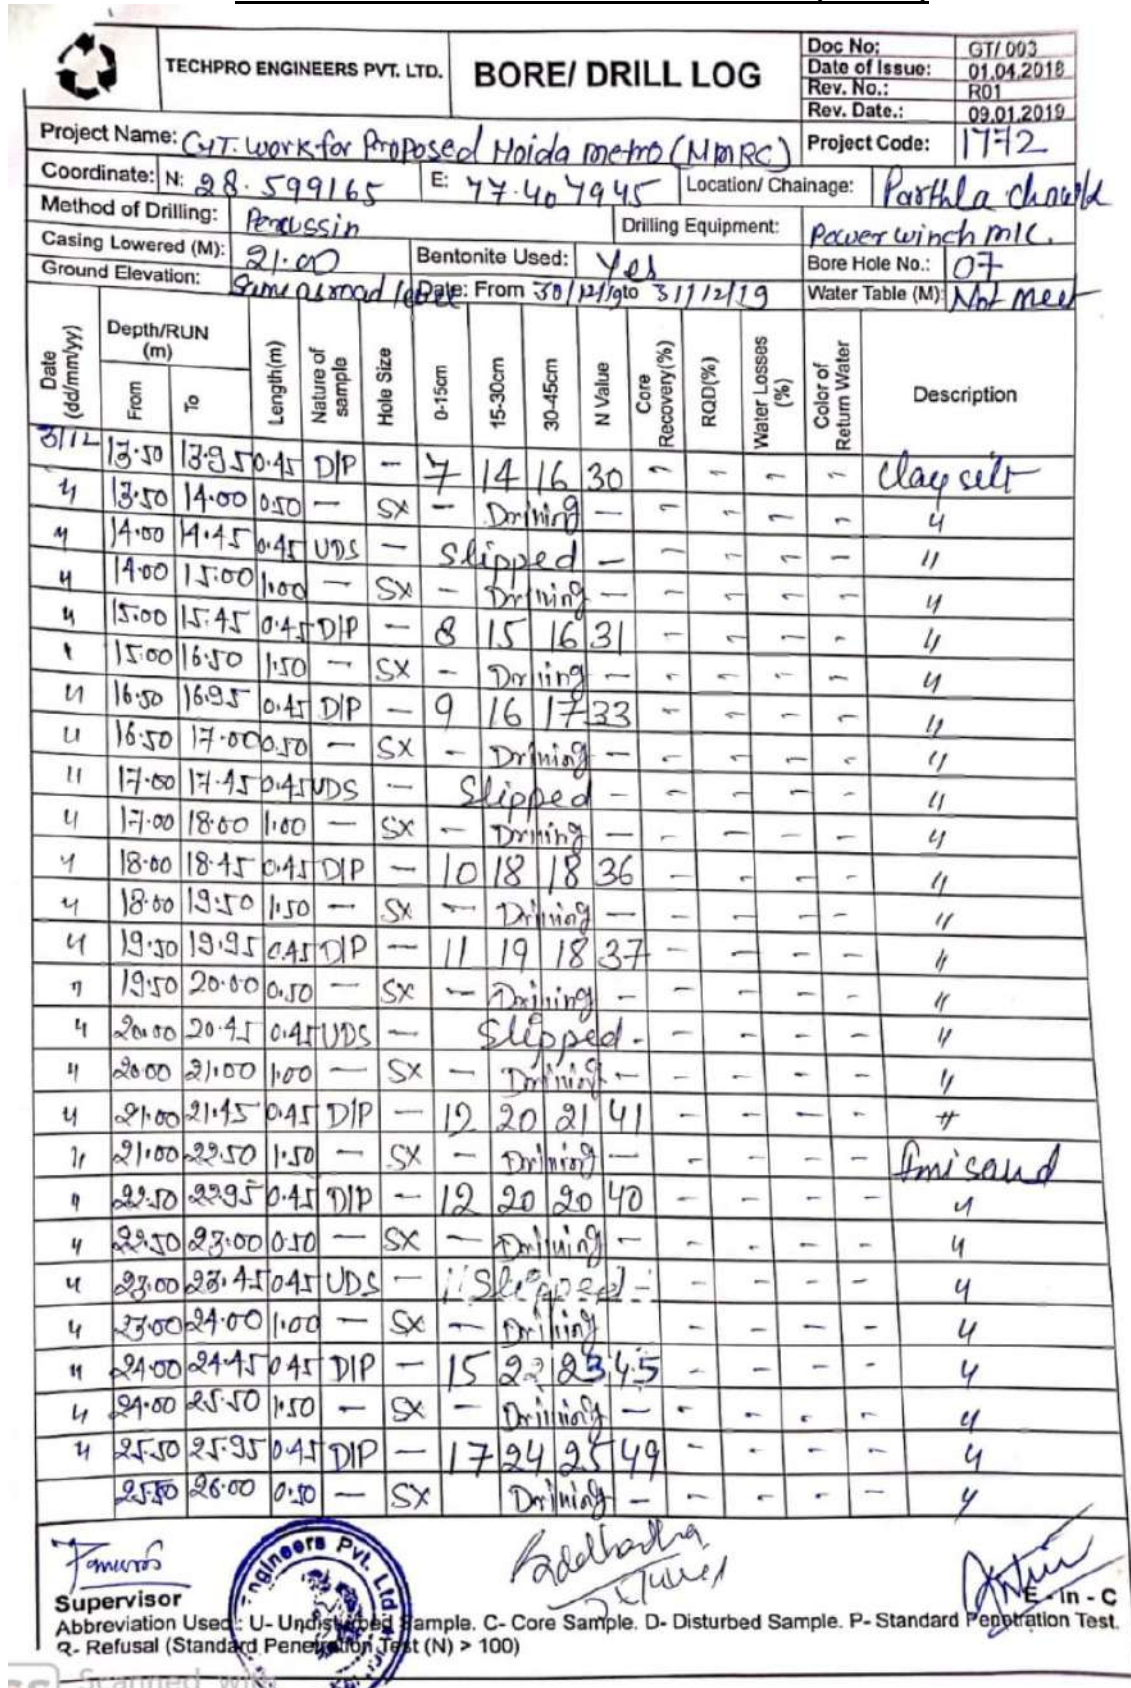 TECHPRO ENGINEERS PVT. LTD. BORE/ DRILL LOG
Doc No: GT/ 003
Date of Issue: 01.04.2018
Rev. No.: R01
Rev. Date.: 09.01.2019
Project Name: G.T. work for Proposed Noida metro (NMRC) Project Code: 1772
Coordinate: N: 28.599165 E: 77.407945 Location/ Chainage: Parthla chowk
Method of Drilling: Percussin Drilling Equipment: Power winch m/c.
Casing Lowered (M): 21.00 Bentonite Used: Yes Bore Hole No.: 07
Ground Elevation: Same as road level Date: From 30/12/19 to 31/12/19 Water Table (M): Not meet
Date (dd/mm/yy) Depth/RUN (m) From To Length(m) Nature of sample Hole Size 0-15cm 15-30cm 30-45cm N Value Core Recovery(%) RQD(%) Water Losses (%) Color of Return Water Description
31/12 13.50 13.95 0.45 D/P - 7 14 16 30 - - - - Clay silt
" 13.50 14.00 0.50 - SX - Drilling - - - - - "
" 14.00 14.45 0.45 UDS - Slipped - - - - - "
" 14.00 15.00 1.00 - SX - Drilling - - - - - "
" 15.00 15.45 0.45 D/P - 8 15 16 31 - - - - "
" 15.00 16.50 1.50 - SX - Drilling - - - - - "
" 16.50 16.95 0.45 D/P - 9 16 17 33 - - - - "
" 16.50 17.00 0.50 - SX - Drilling - - - - - "
" 17.00 17.45 0.45 UDS - Slipped - - - - - "
" 17.00 18.00 1.00 - SX - Drilling - - - - - "
" 18.00 18.45 0.45 D/P - 10 18 18 36 - - - - "
" 18.00 19.50 1.50 - SX - Drilling - - - - - "
" 19.50 19.95 0.45 D/P - 11 19 18 37 - - - - "
" 19.50 20.00 0.50 - SX - Drilling - - - - - "
" 20.00 20.45 0.45 UDS - Slipped - - - - - "
" 20.00 21.00 1.00 - SX - Drilling - - - - - "
" 21.00 21.45 0.45 D/P - 12 20 21 41 - - - - "
" 21.00 22.50 1.50 - SX - Drilling - - - - - sand
" 22.50 22.95 0.45 D/P - 12 20 20 40 - - - - "
" 22.50 23.00 0.50 - SX - Drilling - - - - - "
" 23.00 23.45 0.45 UDS - Slipped - - - - - "
" 23.00 24.00 1.00 - SX - Drilling - - - - "
" 24.00 24.45 0.45 D/P - 15 22 23 45 - - - - "
" 24.00 25.50 1.50 - SX - Drilling - - - - - "
" 25.50 25.95 0.45 D/P - 17 24 25 49 - - - - "
25.50 26.00 0.50 - SX Drilling - - - - - "
Engineers Pvt. Ltd
Supervisor E - In - C
Abbreviation Used : U- Undisturbed Sample. C- Core Sample. D- Disturbed Sample. P- Standard Penetration Test.
R- Refusal (Standard Penetration Test (N) > 100)
CS Scanned with